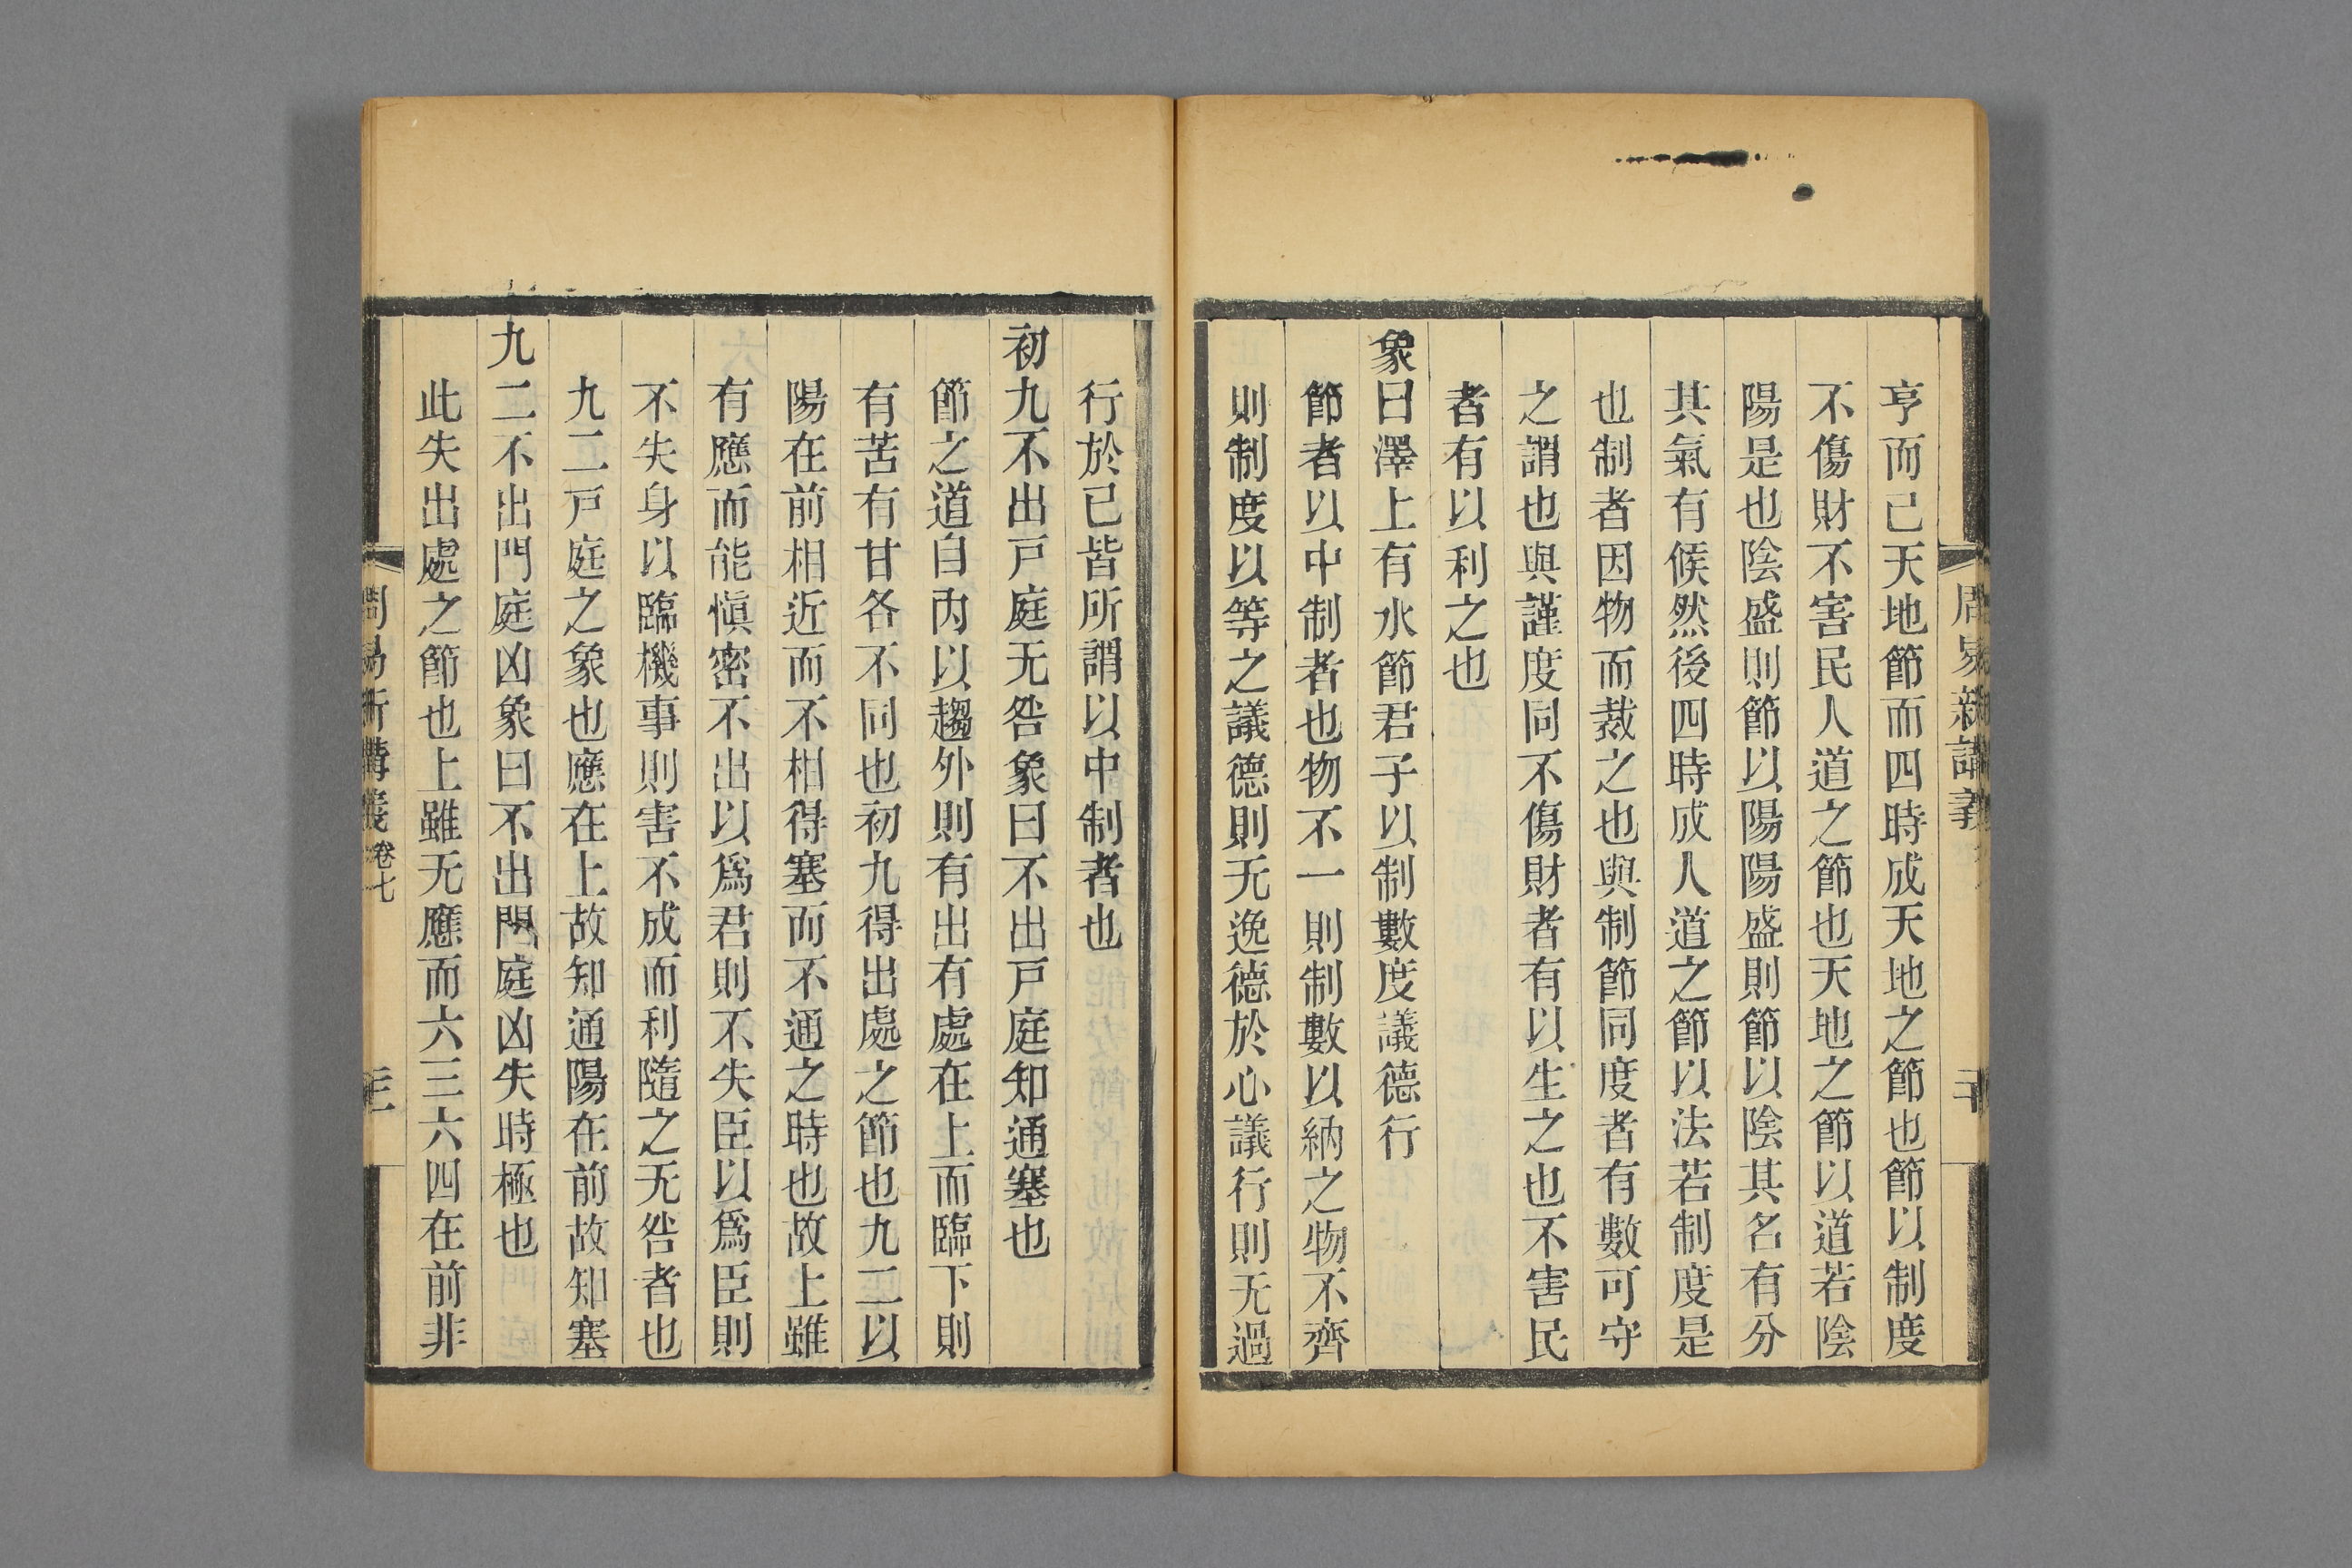 亨而已天地節而四時成天地之節也節以制度
不傷財不害民人道之節也天地之節以道若陰
陽是也陰盛則節以陽陽盛則節以陰其名有分
其氣有候然後四時成人道之節以法若制度是
也制者因物而裁之也與制節同度者有數可守
之謂也與謹度同不傷財者有以生之也不害民
者有以利之也
象曰澤上有水節君子以制數度議德行
節者以中制者也物不一則制數以納之物不齊
則制度以等之議德則无逸德於心議行則无過
行於已皆所謂以中制者也
初九不出戸庭无咎象曰不出戸庭知通塞也
節之道自內以趨外則有出有處在上而臨下則
有苦有甘各不同也初九得出處之節也九二以
陽在前相近而不相得塞而不通之時也故上雖
有應而能愼密不出以爲君則不失臣以爲臣則
不失身以臨機事則害不成而利隨之无咎者也
九二戸庭之象也應在上故知通陽在前故知塞
九二不出門庭凶象曰不出門庭凶失時極也
此失出處之節也上雖无應而六三六四在前非
周易新講義卷七